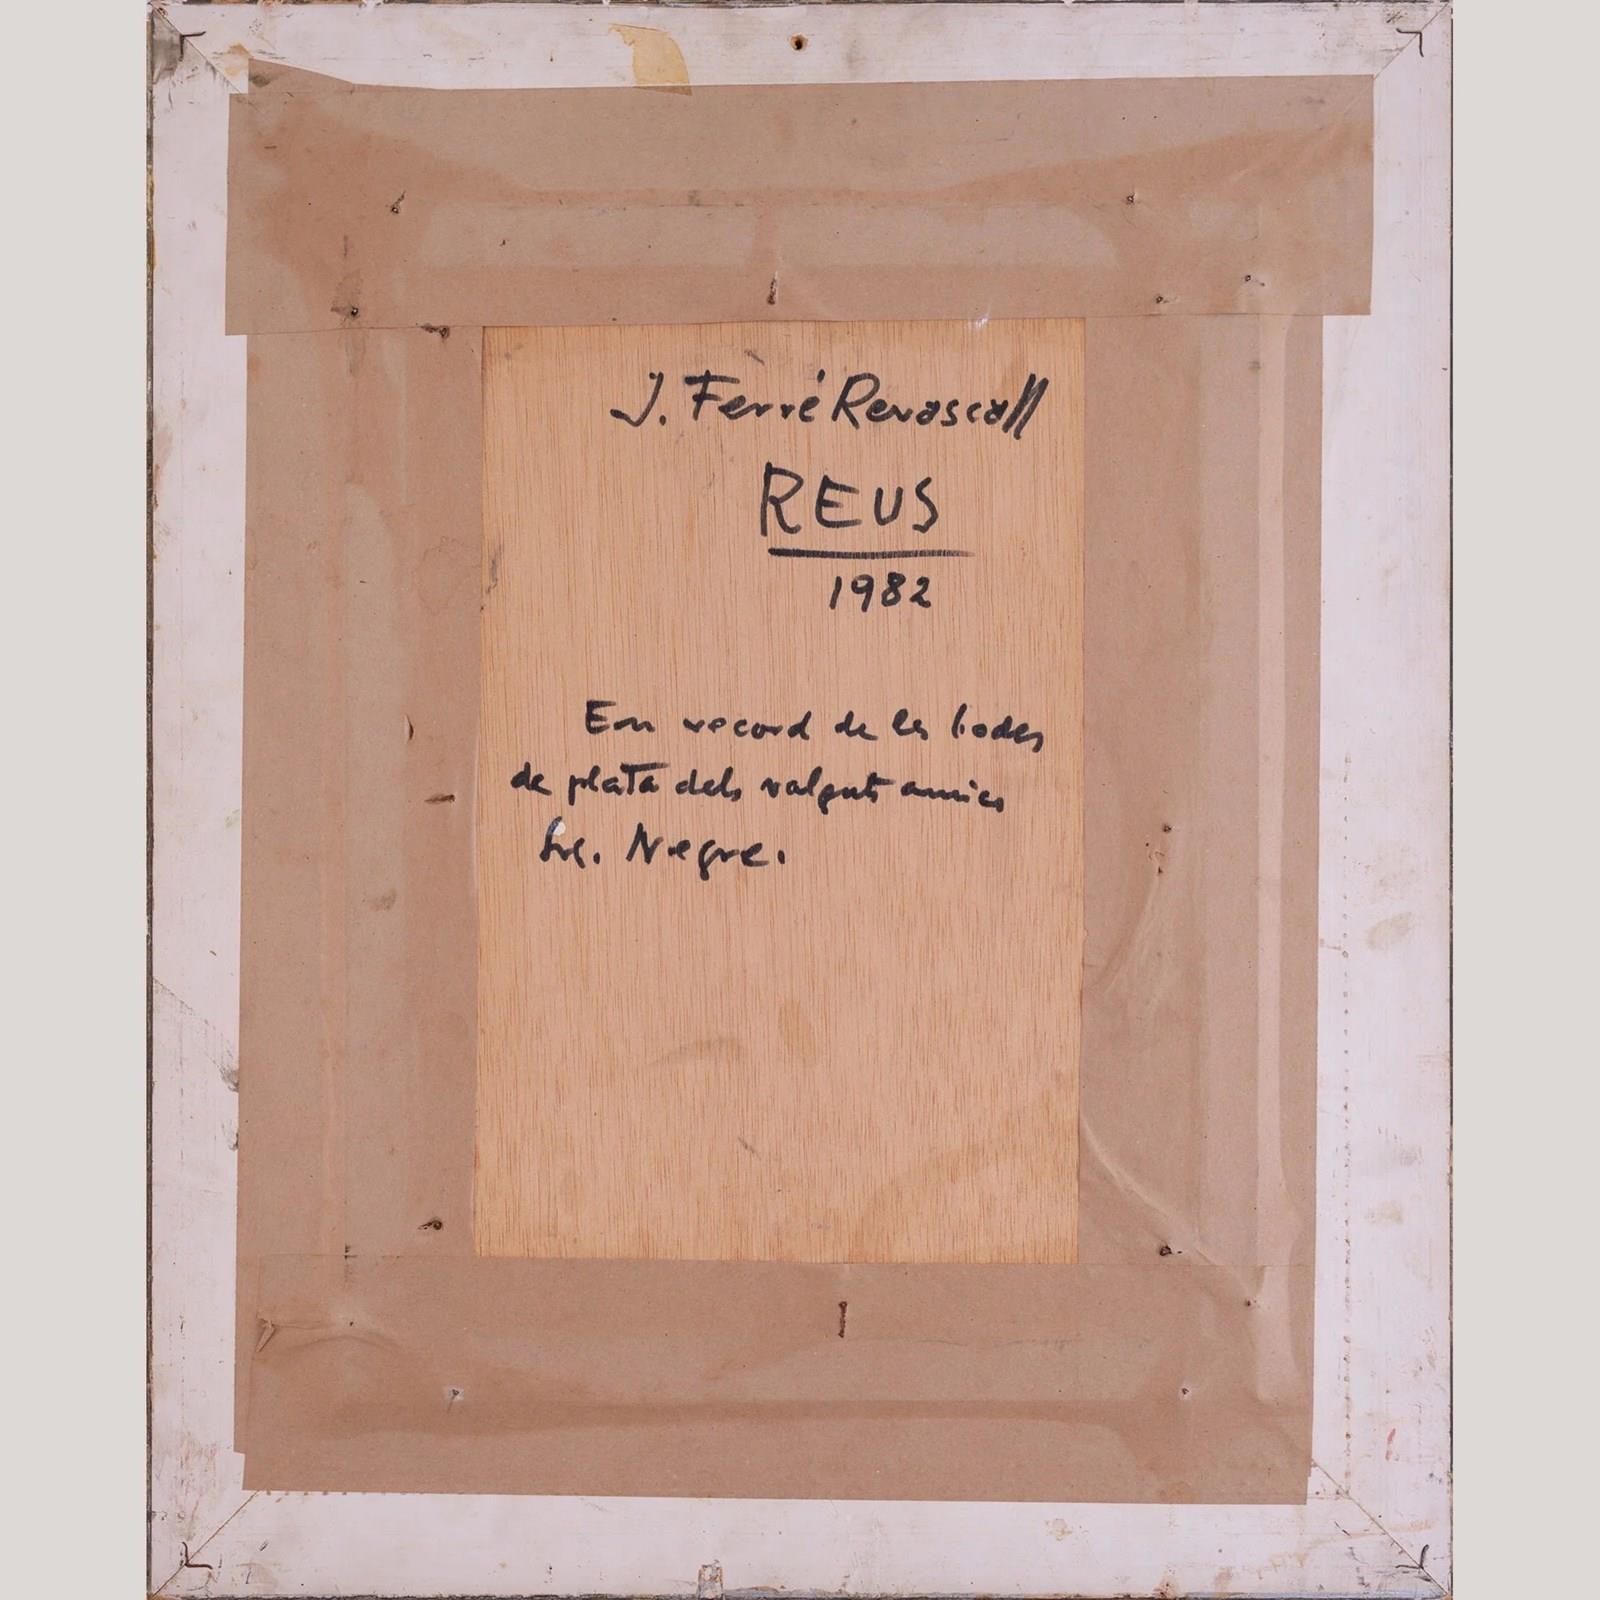 J. Ferré Revascall
REUS
1982
En record de les bodes
de plata dels valguts amics
Srs. Negre.